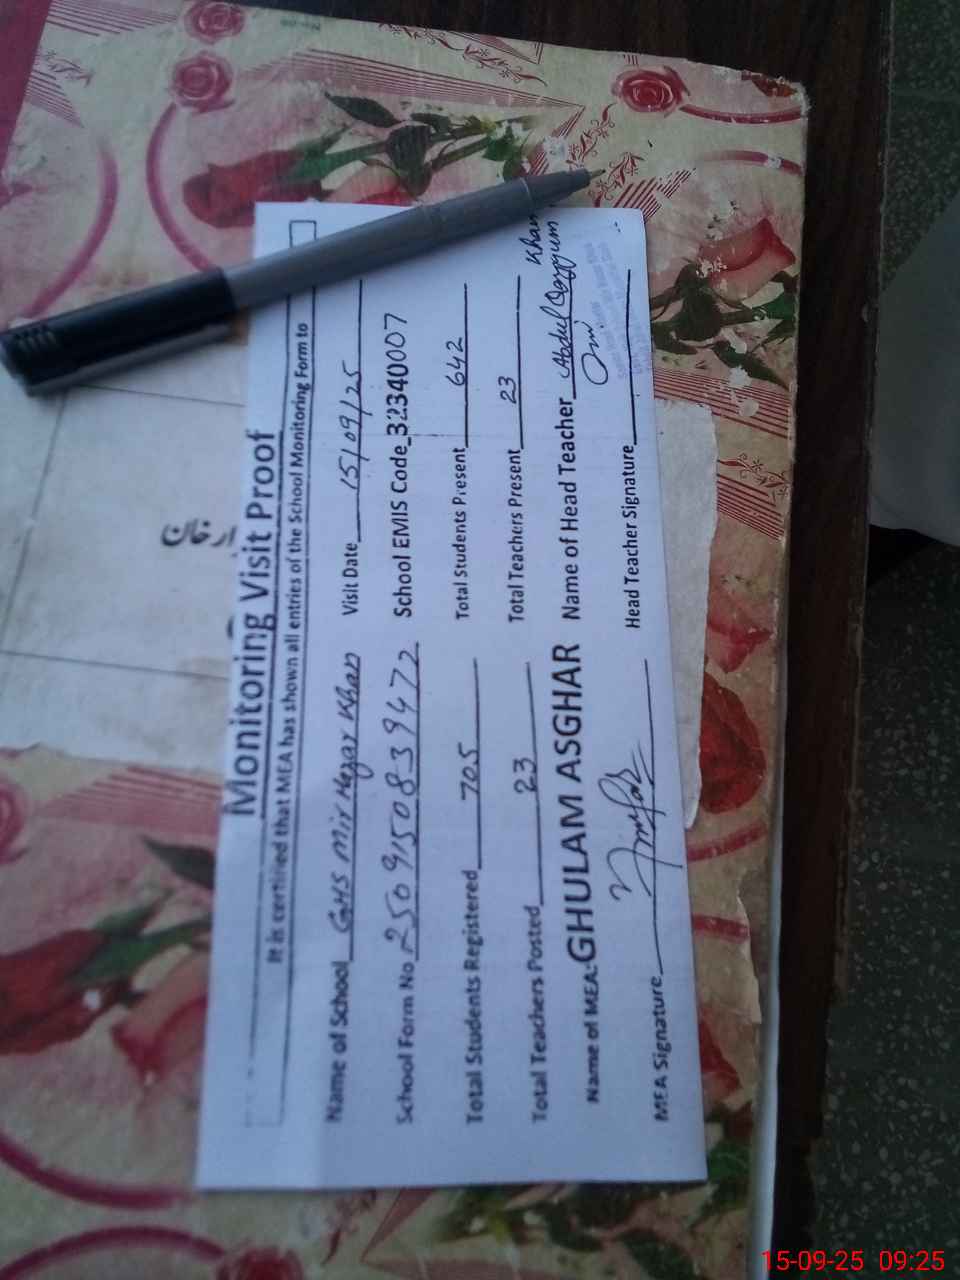 Monitoring Visit Proof
It is certified that MEA has shown all entries of the School Monitoring Form to
Name of School GHS Mir Hazar Khan Visit Date 15/09/25
School Form No 2509150839472 School EMIS Code 32340007
Total Students Registered 705 Total Students Present 642
Total Teachers Posted 23 Total Teachers Present 23
Name of MEA: GHULAM ASGHAR Name of Head Teacher Abdul Qayyum Khan
MEA Signature Head Teacher Signature
15-09-25 09:25